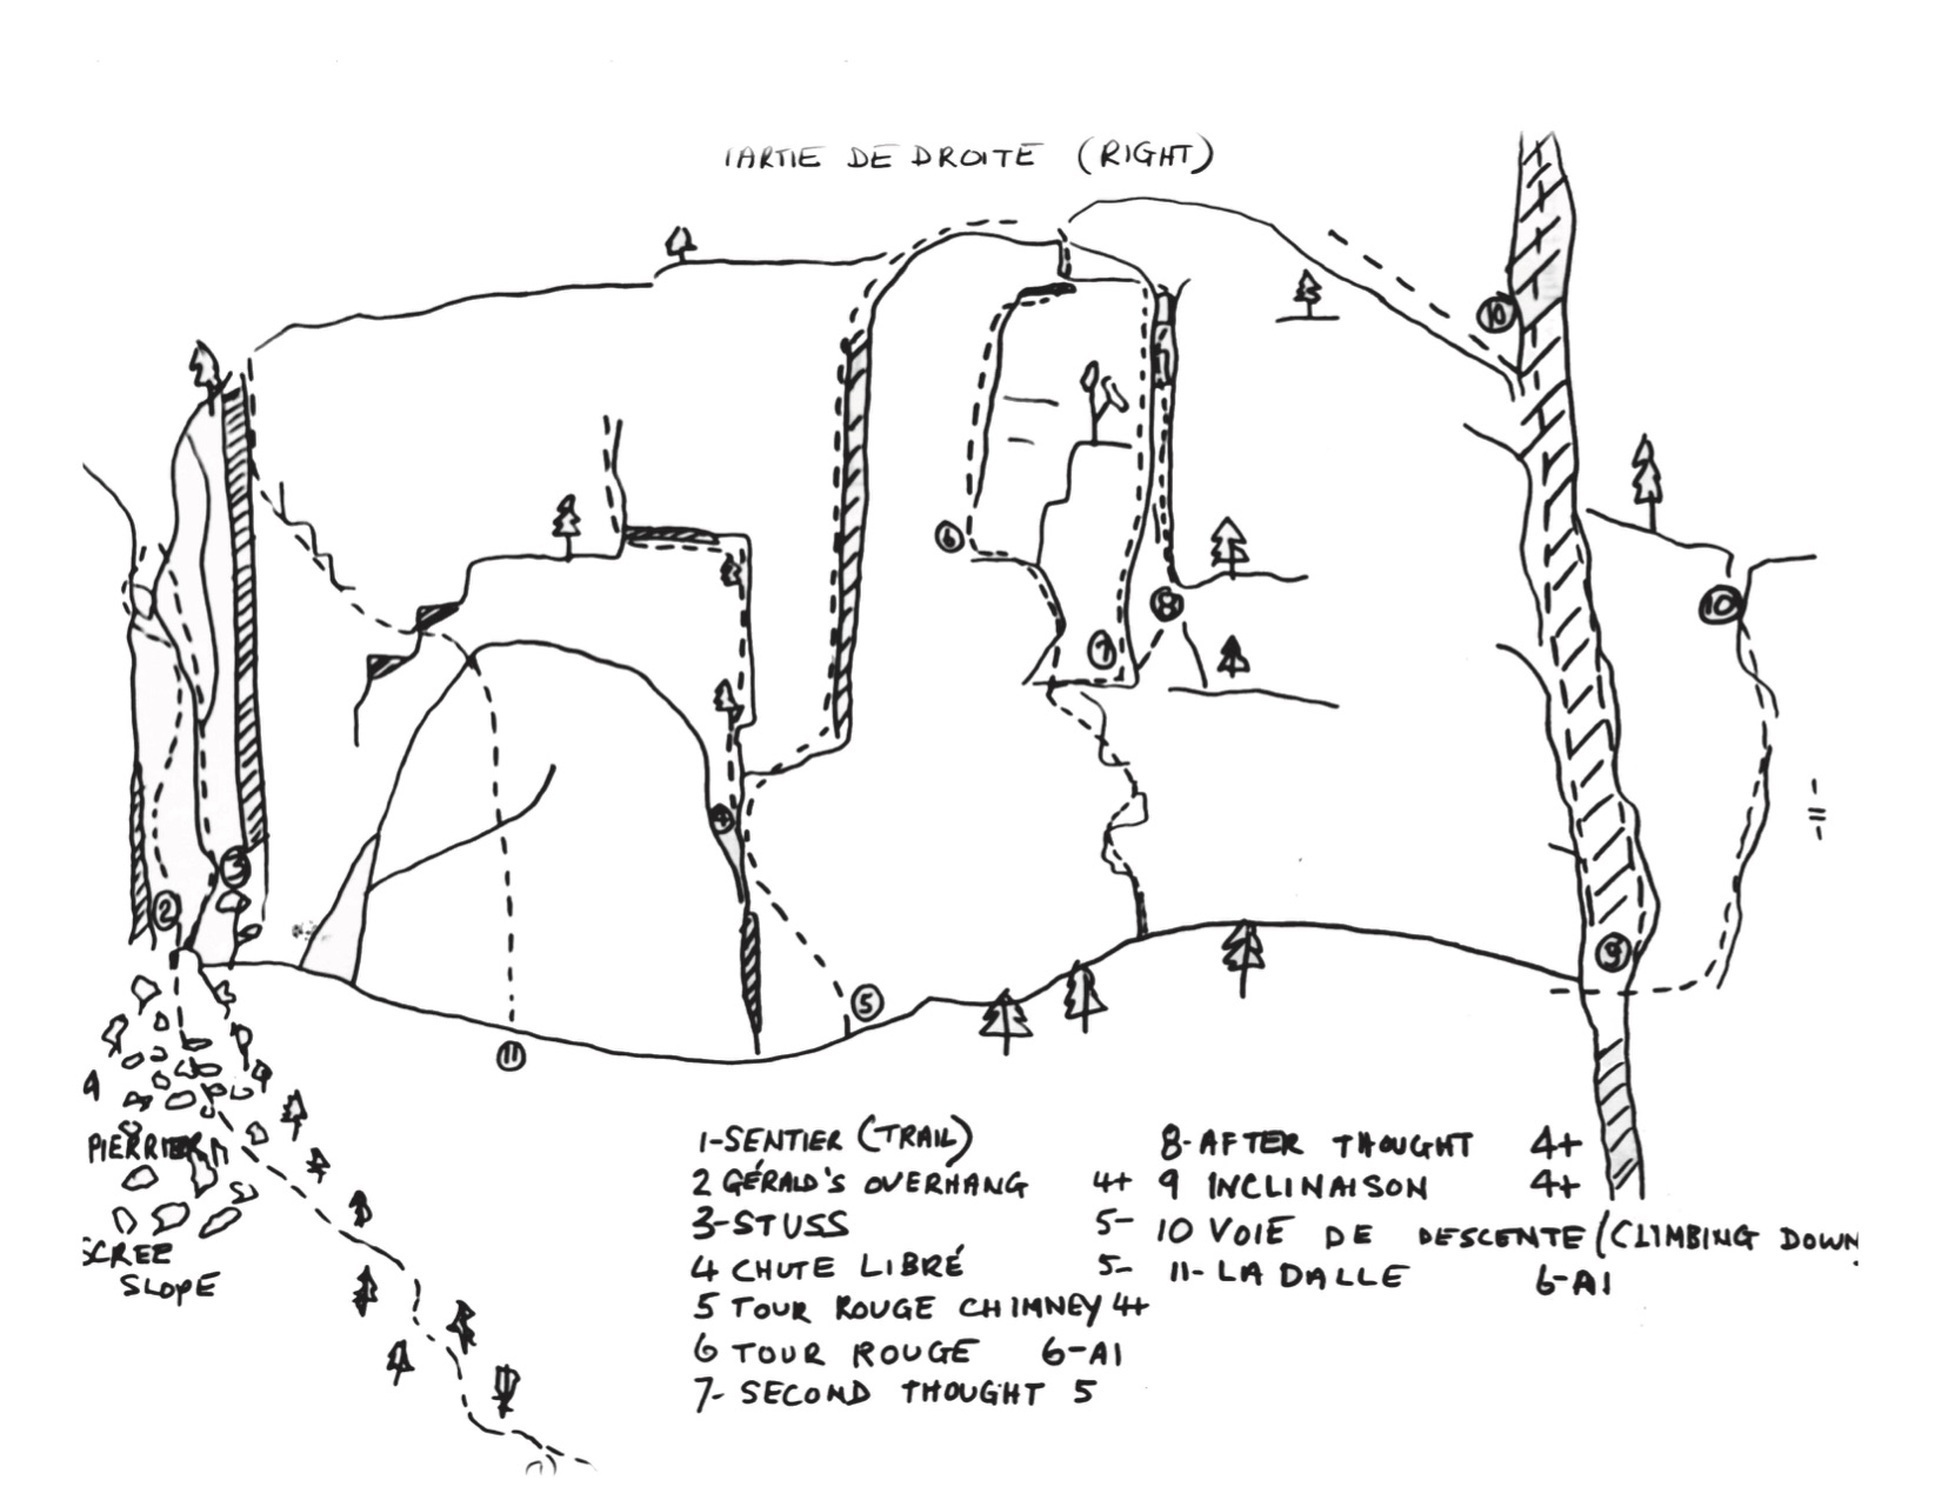 PARTIE DE DROITE (RIGHT)
10
6
10
8
7
4
3
2
9
5
11
PIERRIER
SCREE
SLOPE
1-SENTIER (TRAIL)
2 GÉRALD'S OVERHANG 4+
3-STUSS 5-
4 CHUTE LIBRÉ 5-
5 TOUR ROUGE CHIMNEY 4+
6 TOUR ROUGE 6-A1
7- SECOND THOUGHT 5
8-AFTER THOUGHT 4+
9 INCLINAISON 4+
10 VOIE DE DESCENTE/(CLIMBING DOWN
11-LA DALLE 6-A1